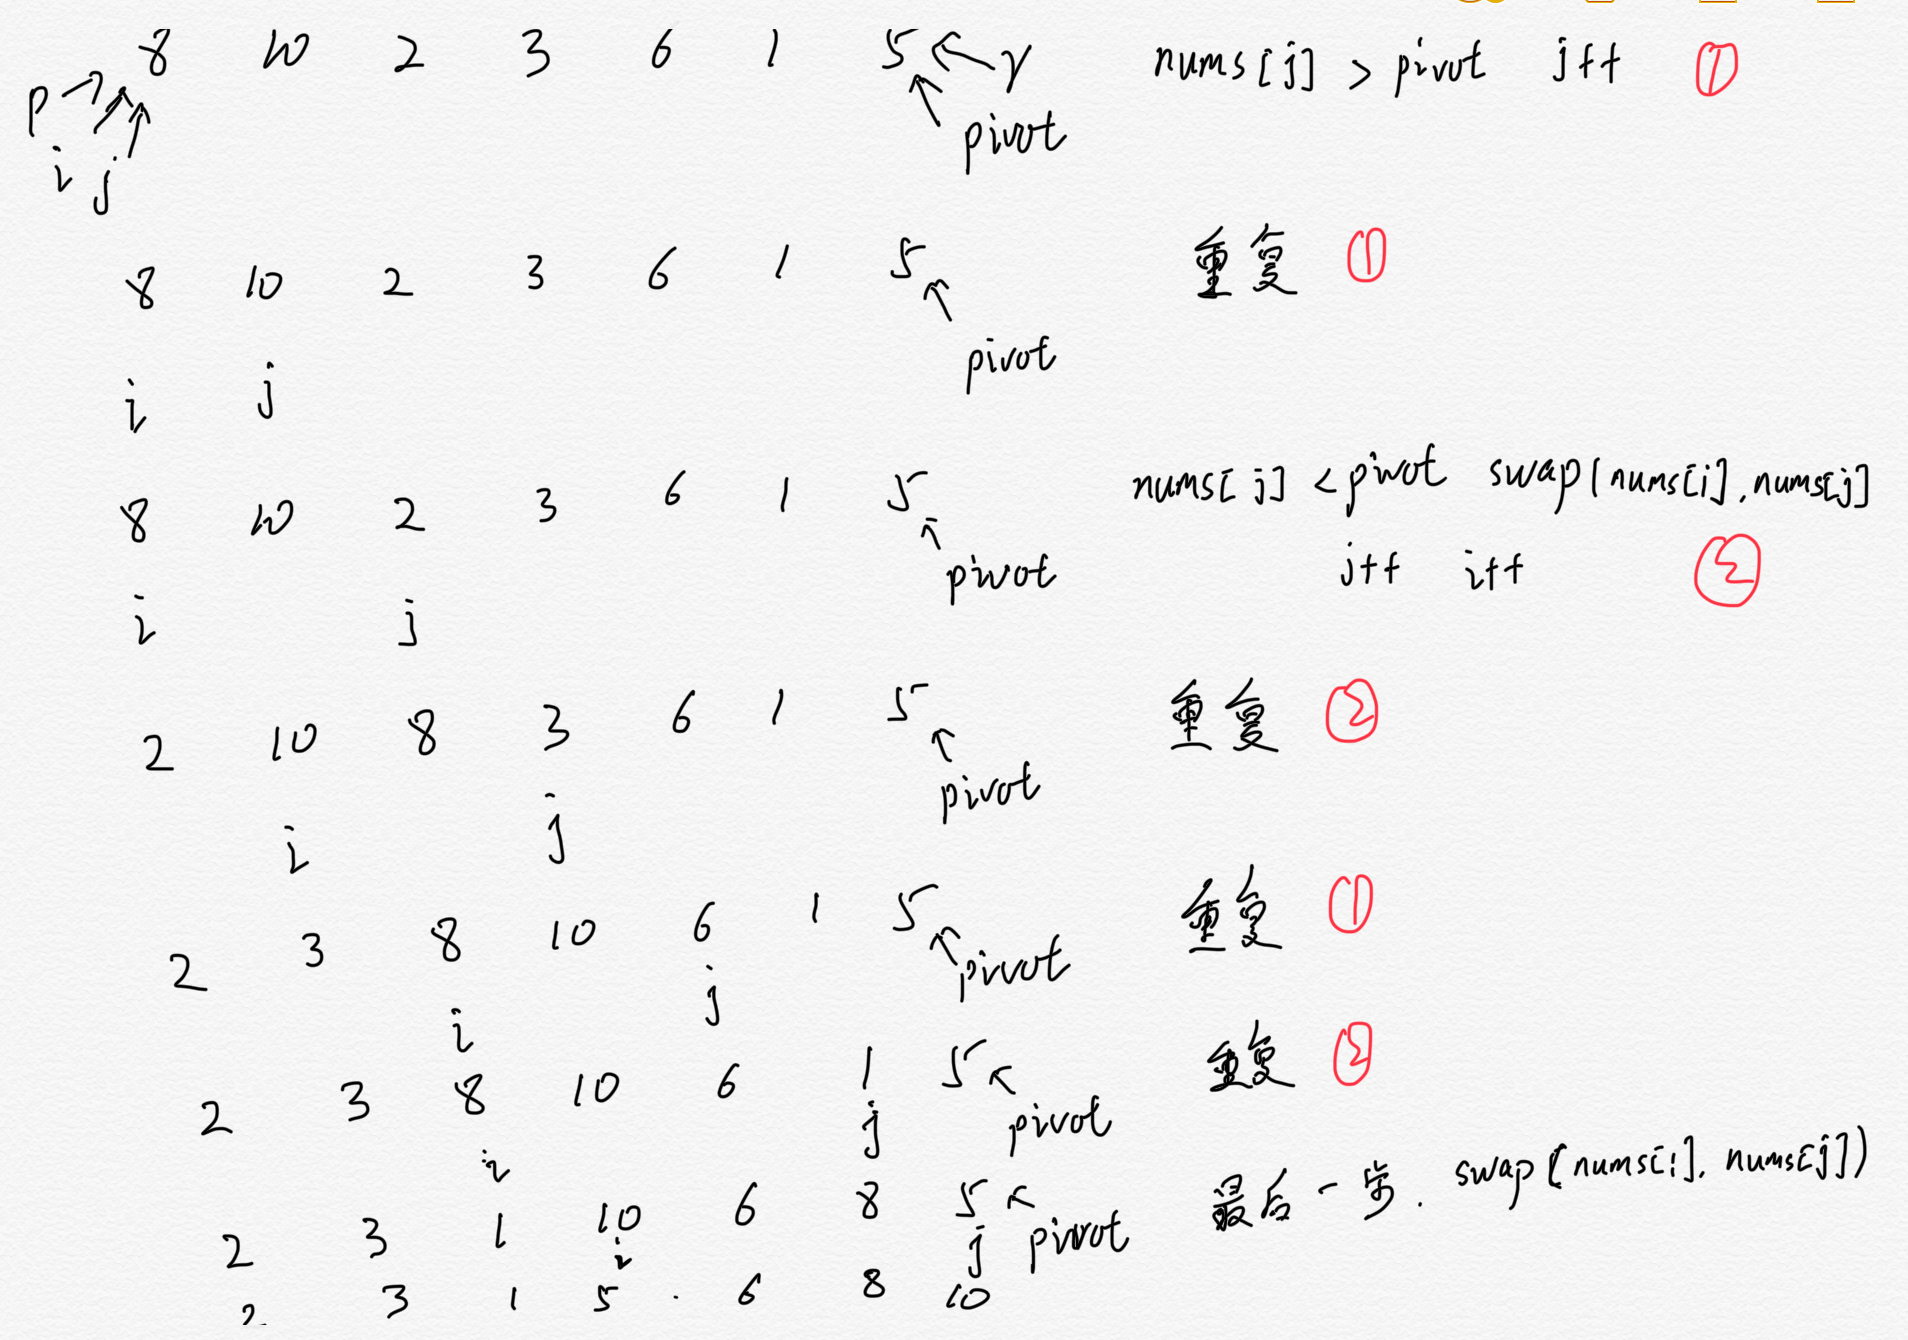 8 10 2 3 6 1 5 r nums[j] > pivot j++ ①
p pivot
i j
8 10 2 3 6 1 5 重复 ①
pivot
i j
8 10 2 3 6 1 5 nums[j] < pivot swap(nums[i], nums[j]
pivot j++ i++ ②
i j
2 10 8 3 6 1 5 重复 ②
pivot
i j
2 3 8 10 6 1 5 重复 ①
pivot
i j
2 3 8 10 6 1 5 重复 ②
j pivot
i
2 3 1 10 6 8 5 最后一步. swap(nums[i], nums[j])
i j pivot
2 3 1 5 . 6 8 10